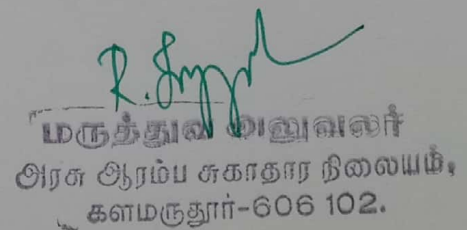 R.
மருத்துவ அலுவலர்
அரசு ஆரம்ப சுகாதார நிலையம்,
களமருதூர்-606 102.